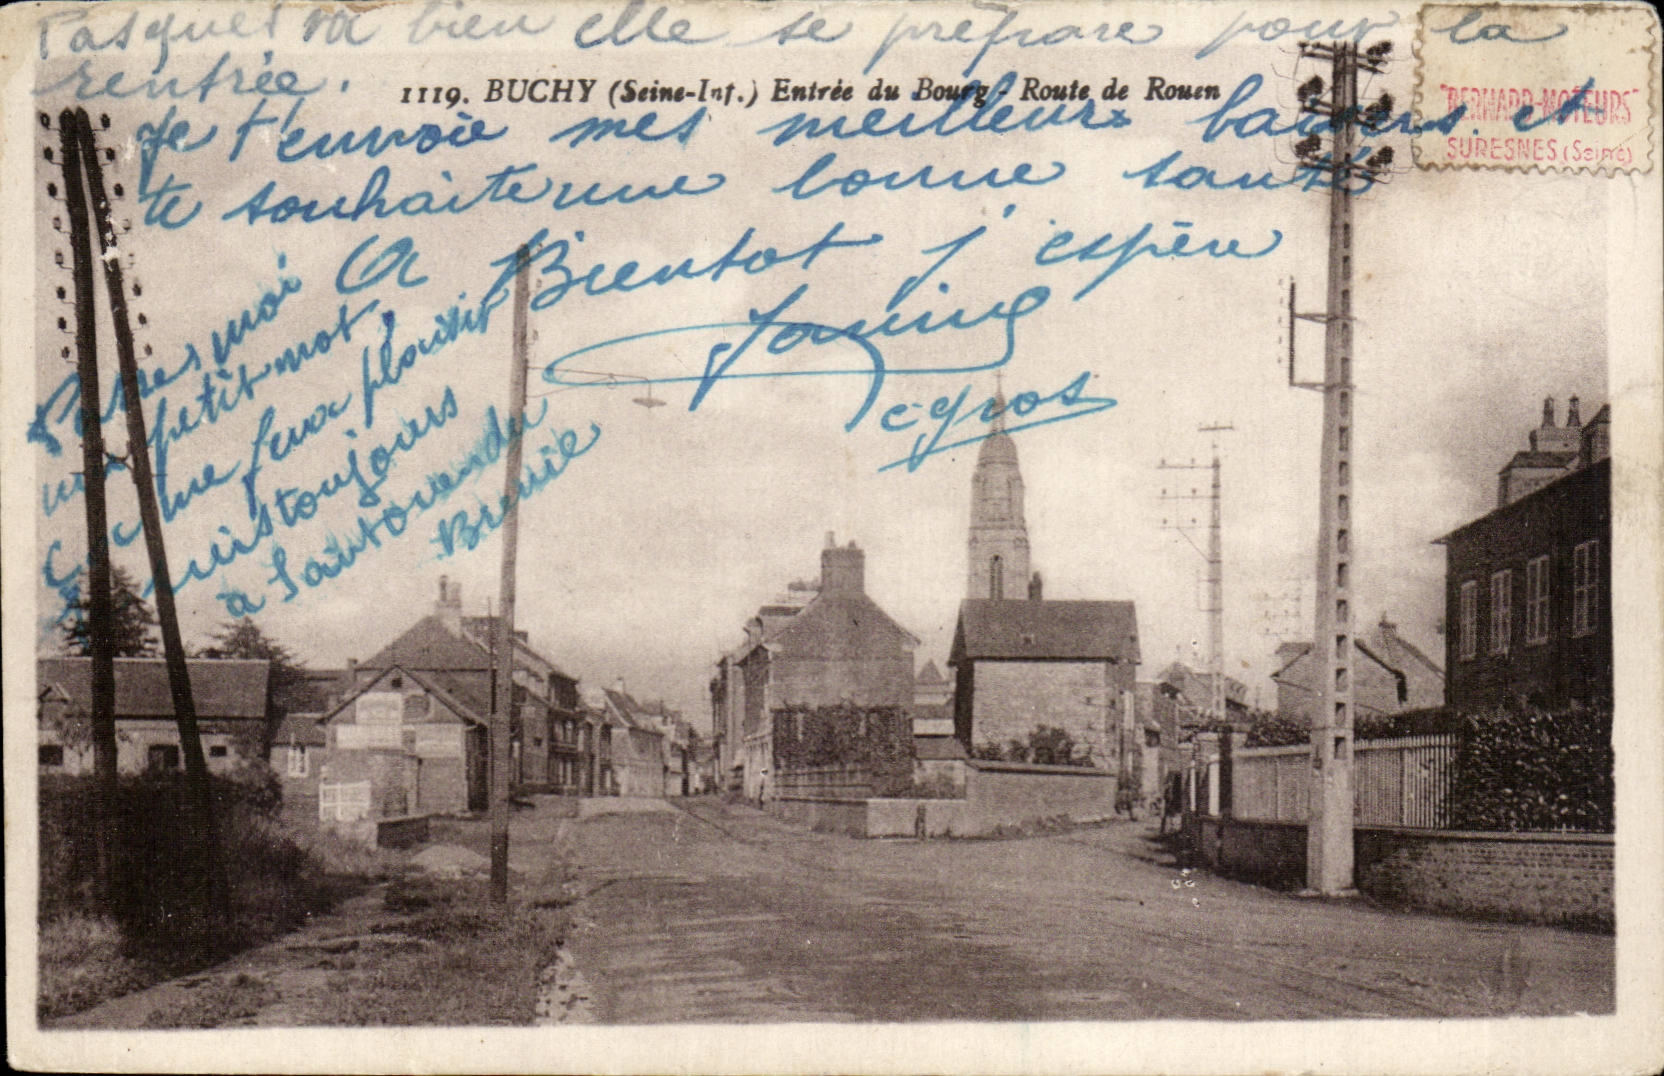 va bien elle se prépare pour la
rentrée.
1119. BUCHY (Seine-Inf.) Entrée du Bourg - Route de Rouen
"BERNARD-MOTEURS"
SURESNES (Seine)
Je t'envoie mes meilleurs baisers et
te souhaite une bonne santé
A Bientot j'espère
Janine
Legros
moi
petit mot,
me fera plaisir
suis toujours
à